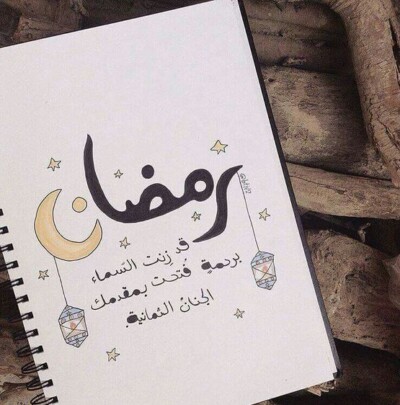 رمضان
قد زينت السماء
برحمة فُتحت بمقدمك
الجنانُ الثمانية.